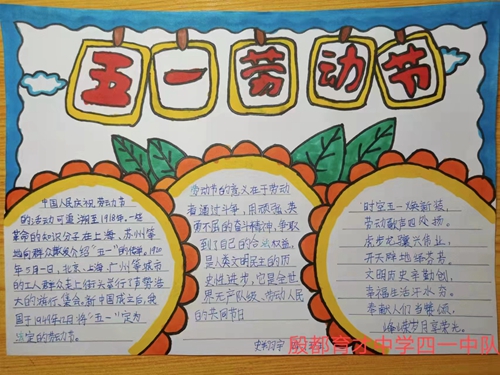 五一劳动节
中国人民庆祝劳动节
的活动可追溯至1918年。一些
革命的知识分子在上海、苏州等
地向群众散发介绍"五一"的传单。1920
年5月1日,北京、上海、广州等城市
的工人群众走上街头举行了声势浩
大的游行、集会。新中国成立后,我
国于1949年12月将"五一"定为
法定的劳动节。
劳动节的意义在于劳动
者通过斗争,用顽强、英
勇不屈的奋斗精神,争取
到了自己的合法权益。
是人类文明民主的历
史性进步,它是全世
界无产阶级、劳动人民
的共同节日
时空五一焕新装,
劳动歌声四处扬。
虎步龙骧兴伟业,
开天辟地铸
文明历史辛勤创,
幸福生活汗水
奉献人们当赞颂,
岁月享荣光。
殷都育才中学四一中队